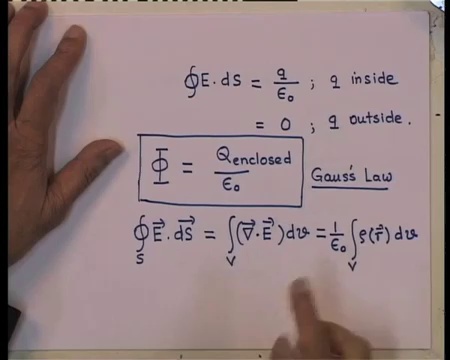 ∮E.ds = q/ε₀ ; q inside
= 0 ; q outside.
Φ = Qenclosed/ε₀ Gauss's Law
∮_S E⃗.ds⃗ = ∫_V (∇⃗.E⃗)dv = 1/ε₀ ∫_V ρ(r⃗) dv